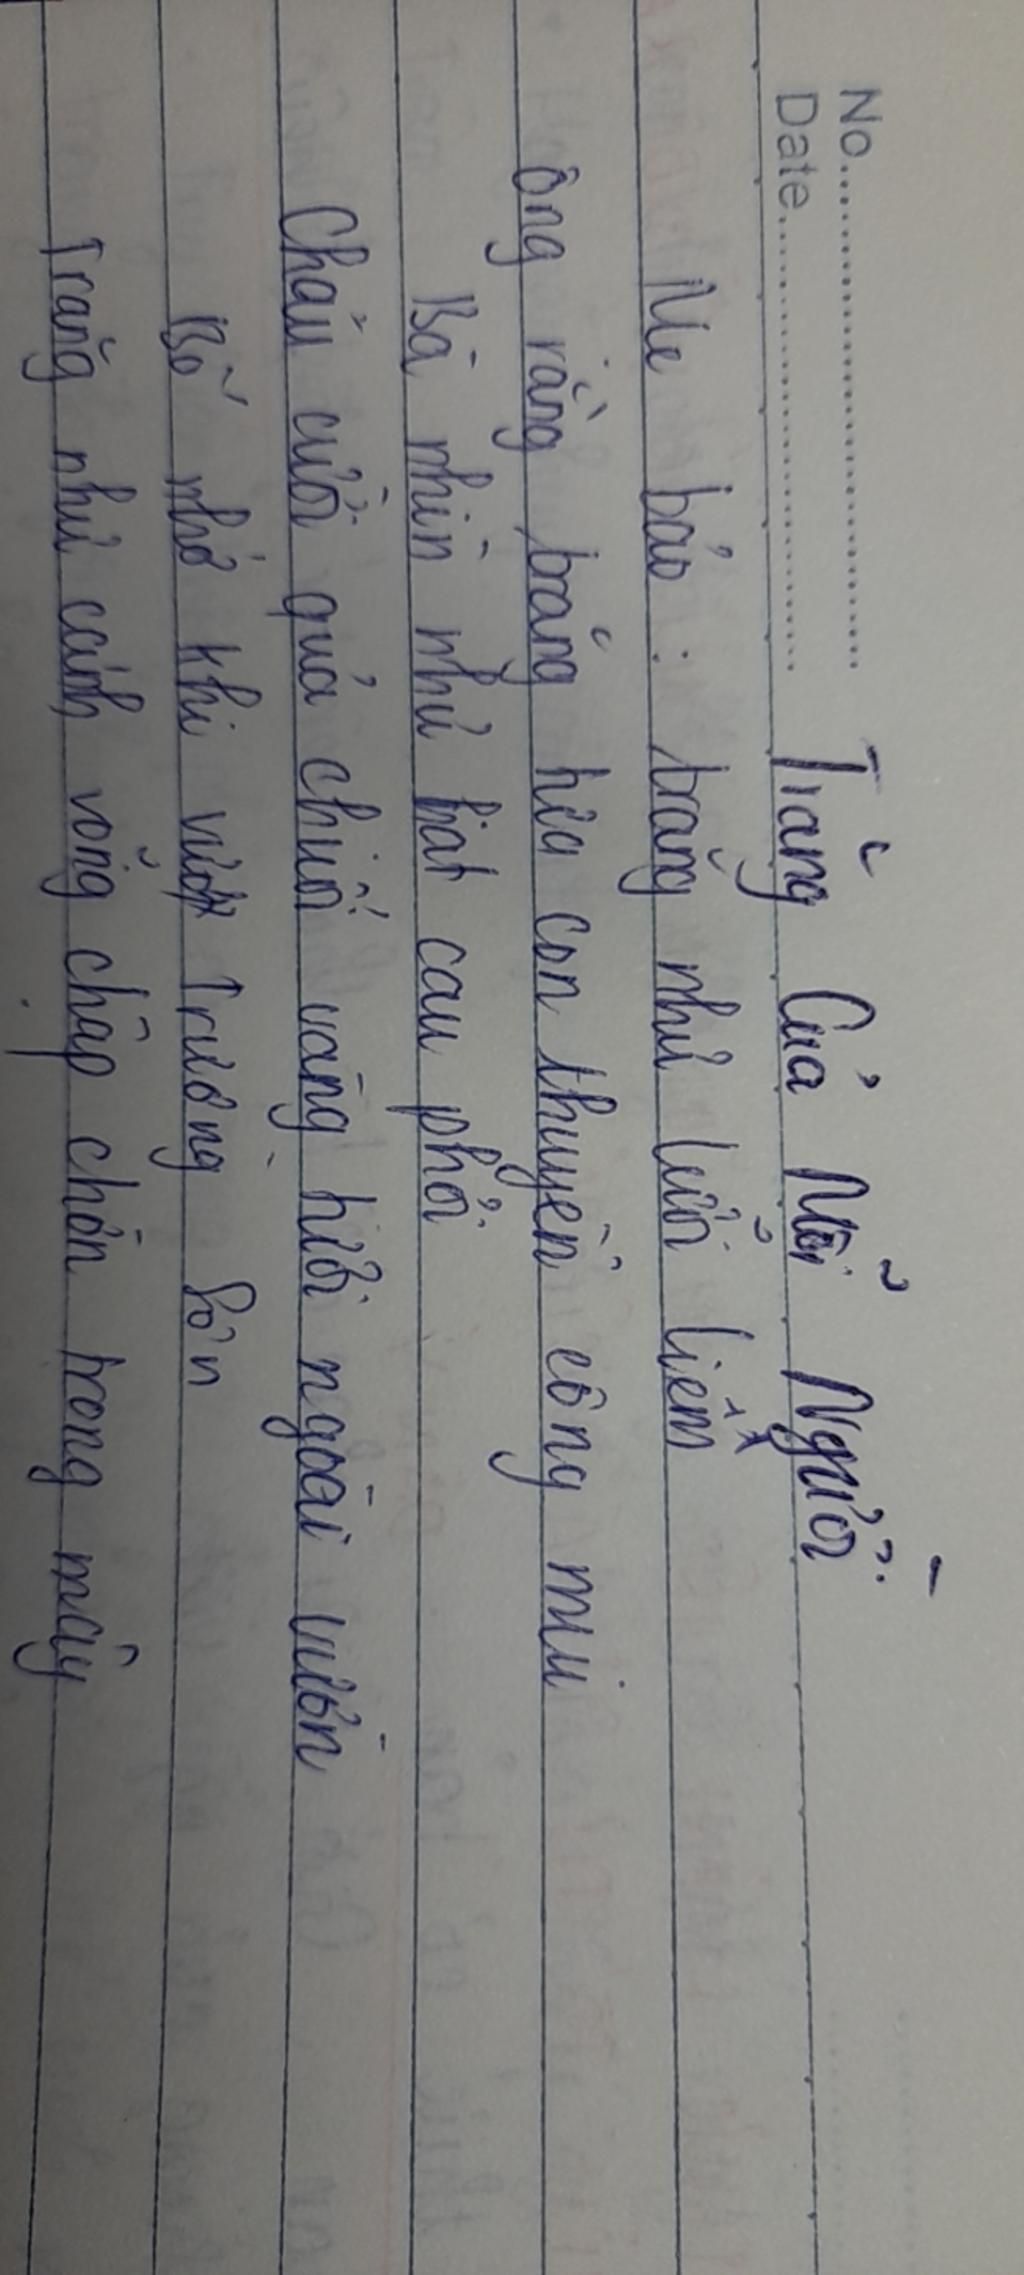 No.
Date.
Trăng Của Mỗi Người
Mẹ bảo: trăng như lưỡi liềm
Ông rằng trăng tựa con thuyền cong mui
Bà nhìn như hạt cau phơi
Cháu cười quả chuối vàng tươi ngoài vườn
Bố nhớ khi vượt Trường Sơn
Trăng như cánh võng chập chờn trong mây